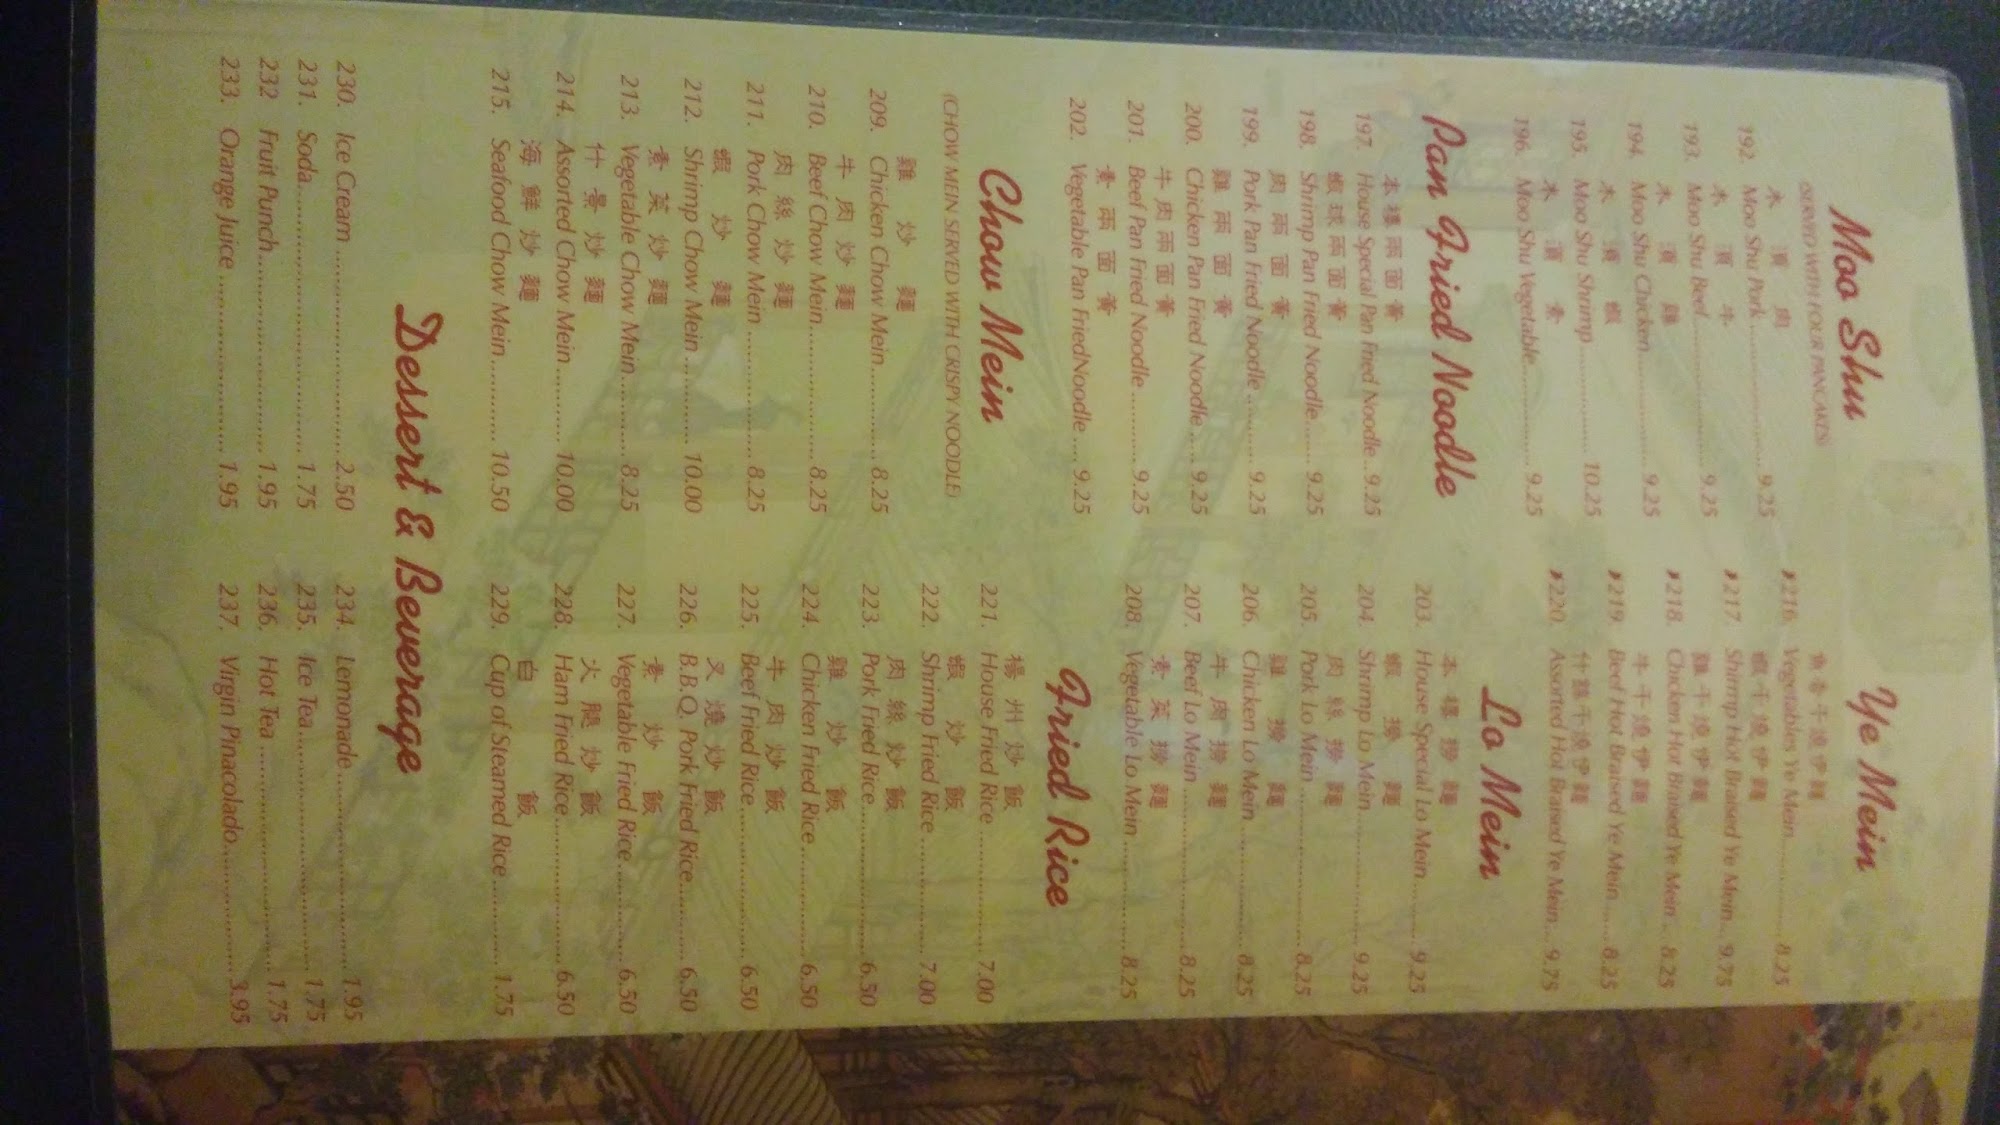 Moo Shu
(SERVED WITH FOUR PANCAKES)
木 須 肉
192. Moo Shu Pork 9.25
木 須 牛
193. Moo Shu Beef 9.25
木 須 雞
194. Moo Shu Chicken 9.25
木 須 蝦
195. Moo Shu Shrimp 10.25
木 須 素
196. Moo Shu Vegetable 9.25
Pan Fried Noodle
本樓兩面黃
197. House Special Pan Fried Noodle 9.25
蝦球兩面黃
198. Shrimp Pan Fried Noodle 9.25
肉兩面黃
199. Pork Pan Fried Noodle 9.25
雞兩面黃
200. Chicken Pan Fried Noodle 9.25
牛肉兩面黃
201. Beef Pan Fried Noodle 9.25
素兩面黃
202. Vegetable Pan FriedNoodle 9.25
Chow Mein
(CHOW MEIN SERVED WITH CRISPY NOODLE)
雞 炒 麵
209. Chicken Chow Mein 8.25
牛肉炒麵
210. Beef Chow Mein 8.25
肉絲炒麵
211. Pork Chow Mein 8.25
蝦 炒 麵
212. Shrimp Chow Mein 10.00
素菜炒麵
213. Vegetable Chow Mein 8.25
什景炒麵
214. Assorted Chow Mein 10.00
海鮮炒麵
215. Seafood Chow Mein 10.50
Ye Mein
魚香干燒伊麵
216. Vegetables Ye Mein 8.25
蝦干燒伊麵
217. Shrimp Hot Braised Ye Mein 9.75
雞干燒伊麵
218. Chicken Hot Braised Ye Mein 8.25
牛干燒伊麵
219. Beef Hot Braised Ye Mein 8.25
干燒伊麵
220. Assorted Hot Braised Ye Mein 9.75
Lo Mein
本樓撈麵
203. House Special Lo Mein 9.25
蝦 撈 麵
204. Shrimp Lo Mein 9.25
肉絲撈麵
205. Pork Lo Mein 8.25
雞 撈 麵
206. Chicken Lo Mein 8.25
牛肉撈麵
207. Beef Lo Mein 8.25
素菜撈麵
208. Vegetable Lo Mein 8.25
Fried Rice
揚州炒飯
221. House Fried Rice 7.00
蝦 炒 飯
222. Shrimp Fried Rice 7.00
肉絲炒飯
223. Pork Fried Rice 6.50
雞 炒 飯
224. Chicken Fried Rice 6.50
牛肉炒飯
225. Beef Fried Rice 6.50
叉燒炒飯
226. B.B.Q. Pork Fried Rice 6.50
素 炒 飯
227. Vegetable Fried Rice 6.50
火腿炒飯
228. Ham Fried Rice 6.50
白 飯
229. Cup of Steamed Rice 1.75
Dessert & Beverage
230. Ice Cream 2.50
231. Soda 1.75
232 Fruit Punch 1.95
233. Orange Juice 1.95
234. Lemonade 1.95
235. Ice Tea 1.75
236. Hot Tea 1.75
237. Virgin Pinacolado 3.95